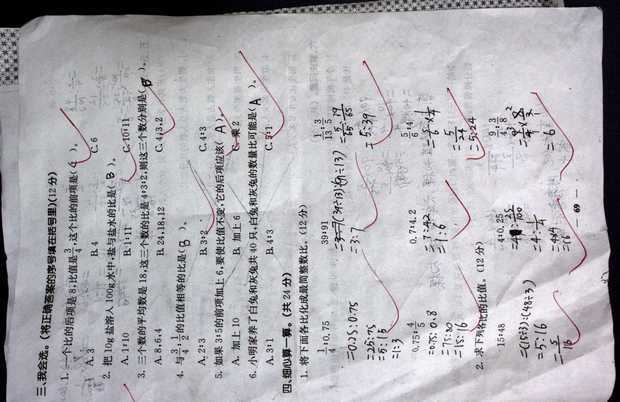 三、我会选。(将正确答案的序号填在括号里)(12分)
1. 一个比的后项是8,比值是3/4,这个比的前项是( )。
A. 3 B. 4 C. 6
2. 把10g盐溶入100g水中,盐与盐水的比是(B)。
A. 1∶10 B. 1∶11 C. 10∶11
3. 三个数的平均数是18,这三个数的比是4∶3∶2,则这三个数分别是(B)。
A. 8,6,4 B. 24,18,12 C. 4,3,2
4. 与 的比值相等的比是(B)。
A. 2∶3 B. 3∶2 C. 4∶3
5. 如果3∶5的前项加上6,要使比值不变,它的后项应该(A)。
A. 加上10 B. 加上6 C. 乘2
6. 小明家养了白兔和灰兔共40只,白兔和灰兔的数量比可能是(A)。
A. 3∶1 B. 4∶3 C. 5∶1
四、细心算一算。(共24分)
1. 将下面各比化成最简整数比。(12分)
1/4∶0.75 39∶91 1/3∶13/5
=0.25:0.75 =(39÷13):(91÷13)
=25:75 =3:7 =5:39
=1:3
0.75∶4/5 0.7∶4.2 5/6∶4
=0.75:0.8 =7:42
=75:80 =1:6 =5/24
=15:16 =5:24
2. 求下列各比的比值。(12分)
15∶48 4∶0.25 9/4∶3/8
=(15÷3):(48÷3)
=5:16 =4÷1/4
=5/16 =4×4 =6
=16
— 69 —